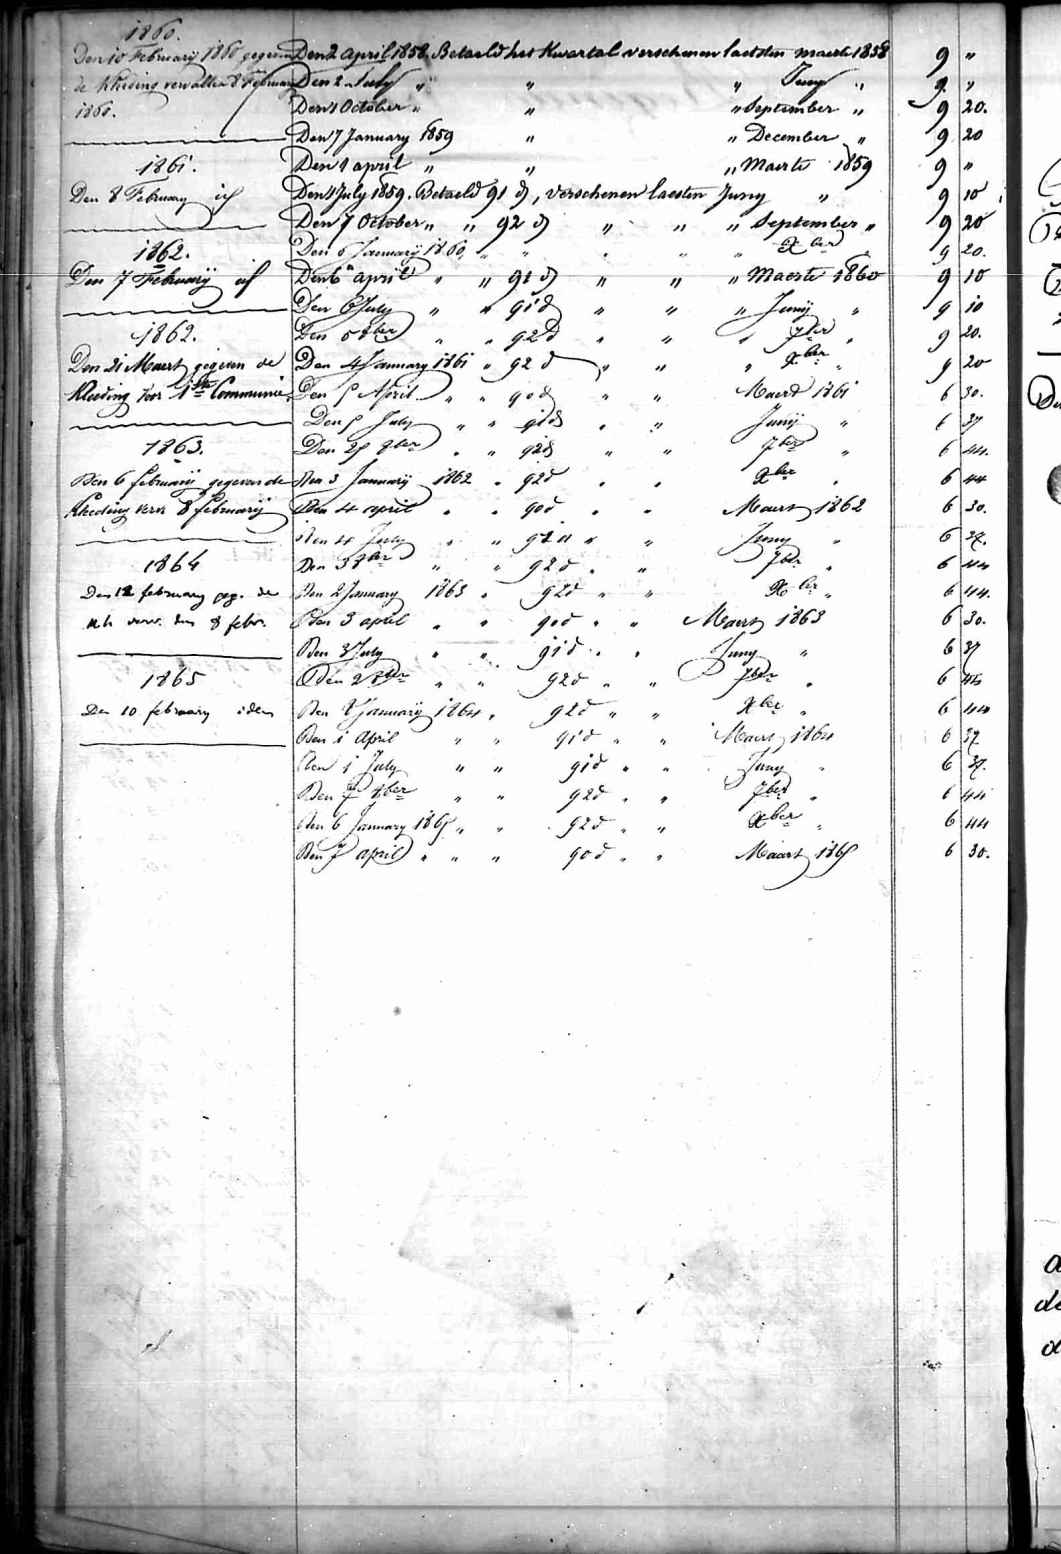 1860.
Den 10 February 1860 gegeven
de Kleding vervallen 8 February
1860.
1861.
Den 8 February id
1862.
Den 7 Februarij id
1862.
Den 21 Maert gegeven de
Kleeding voor 1ste Communie
1863.
Den 6 februarij gegeven de
Kleeding verv 8 februarij
1864
Den 12 february geg. de
kl. verv. den 8 febr.
1865
Den 10 february idem
Den 2 April 1858. Betaeld het Kwartal verschenen laetsten maerte 1858 9 "
Den 2 July " " " Juny " 9 "
Den 1 October " " " September " 9 20.
Den 7 January 1859 " " December " 9 20
Den 1 april " " " Maerte 1859 9 "
Den 1 July 1859. Betaeld 91 d, verschenen laesten Juny " 9 10
Den 7 October " " 92 d " " " September " 9 20
Den 6 Januarij 1860 " " " " " Xber 9 20.
Den 6 april " " 91 d " " " Maerte 1860 9 10
Den 6 July " " 91 d " " " Junij " 9 10
Den 5 8ber " " 92 d " " " 7ber " 9 20.
Den 4 January 1861 " 92 d " " " Xber " 9 20
Den 5 April " " 90 d " " Maerd 1861 6 30.
Den 5 July " " 91 d " " Junij " 6 37
Den 8ber " " 92 d " " 7ber " 6 44.
Den 3 Januarij 1862 " 92 d " " Xber " 6 44
Den 4 april " " 90 d " " Maert 1862 6 30.
Den 4 July " " 91 " " " Juny " 6 37.
Den 3 8ber " " 92 d " " 7ber " 6 44
Den 2 January 1863 " 92 d " " Xber " 6 44.
Den 3 april " " 90 d " " Maert 1863 6 30.
Den 3 July " " 91 d " " Juny " 6 37
Den 2 8ber " " 92 d " " 7ber " 6 44
Den 8 Januarij 1864 " 92 d " " Xber " 6 44
Den 1 April " " 91 d " " Maert 1864 6 37
Den 1 July " " 91 d " " Juny " 6 37.
Den 7 8ber " " 92 d " " 7ber " 6 44
Den 6 January 1865 " " 92 d " " Xber " 6 44
Den 7 april " " " 90 d " " Maart 1865 6 30.